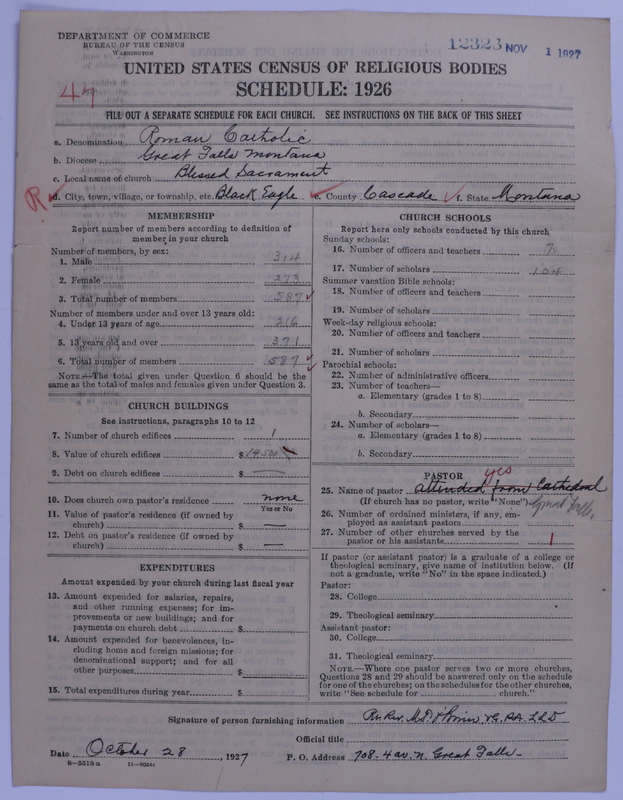 DEPARTMENT OF COMMERCE
BUREAU OF THE CENSUS
WASHINGTON
12323 NOV 1 1927
UNITED STATES CENSUS OF RELIGIOUS BODIES
SCHEDULE: 1926
47
FILL OUT A SEPARATE SCHEDULE FOR EACH CHURCH. SEE INSTRUCTIONS ON THE BACK OF THIS SHEET
a. Denomination Roman Catholic
b. Diocese Great Falls Montana
c. Local name of church Blessed Sacrament
R d. City, town, village, or township, etc. Black Eagle e. County Cascade f. State Montana
MEMBERSHIP
Report number of members according to definition of
member in your church
Number of members, by sex:
1. Male 314
2. Female 273
3. Total number of members 587
Number of members under and over 13 years old:
4. Under 13 years of age 216
5. 13 years old and over 371
6. Total number of members 587
NOTE.—The total given under Question 6 should be the
same as the total of males and females given under Question 3.
CHURCH BUILDINGS
See instructions, paragraphs 10 to 12
7. Number of church edifices 1
8. Value of church edifices $ 14500
9. Debt on church edifices $ —
10. Does church own pastor's residence none
Yes or No
11. Value of pastor's residence (if owned by
church) $ —
12. Debt on pastor's residence (if owned by
church) $ —
EXPENDITURES
Amount expended by your church during last fiscal year
13. Amount expended for salaries, repairs,
and other running expenses; for im-
provements or new buildings; and for
payments on church debt $
14. Amount expended for benevolences, in-
cluding home and foreign missions; for
denominational support; and for all
other purposes $
15. Total expenditures during year $
CHURCH SCHOOLS
Report here only schools conducted by this church
Sunday schools:
16. Number of officers and teachers
17. Number of scholars 104
Summer vacation Bible schools:
18. Number of officers and teachers
19. Number of scholars
Week-day religious schools:
20. Number of officers and teachers
21. Number of scholars
Parochial schools:
22. Number of administrative officers
23. Number of teachers—
a. Elementary (grades 1 to 8)
b. Secondary
24. Number of scholars—
a. Elementary (grades 1 to 8)
b. Secondary
PASTOR yes
25. Name of pastor attended from Cathedral
(If church has no pastor, write "None") Great Falls
26. Number of ordained ministers, if any, em-
ployed as assistant pastors
27. Number of other churches served by the
pastor or his assistants 1
If pastor (or assistant pastor) is a graduate of a college or
theological seminary, give name of institution below. (If
not a graduate, write "No" in the space indicated.)
Pastor:
28. College
29. Theological seminary
Assistant pastor:
30. College
31. Theological seminary
NOTE.—Where one pastor serves two or more churches,
Questions 28 and 29 should be answered only on the schedule
for one of the churches; on the schedules for the other churches,
write "See schedule for church."
Signature of person furnishing information Rt. Rev. M. J. V.G. P.A. LLD
Official title
Date October 28, 1927 P. O. Address 708-4 av. N. Great Falls
6—5518a 11—9094a